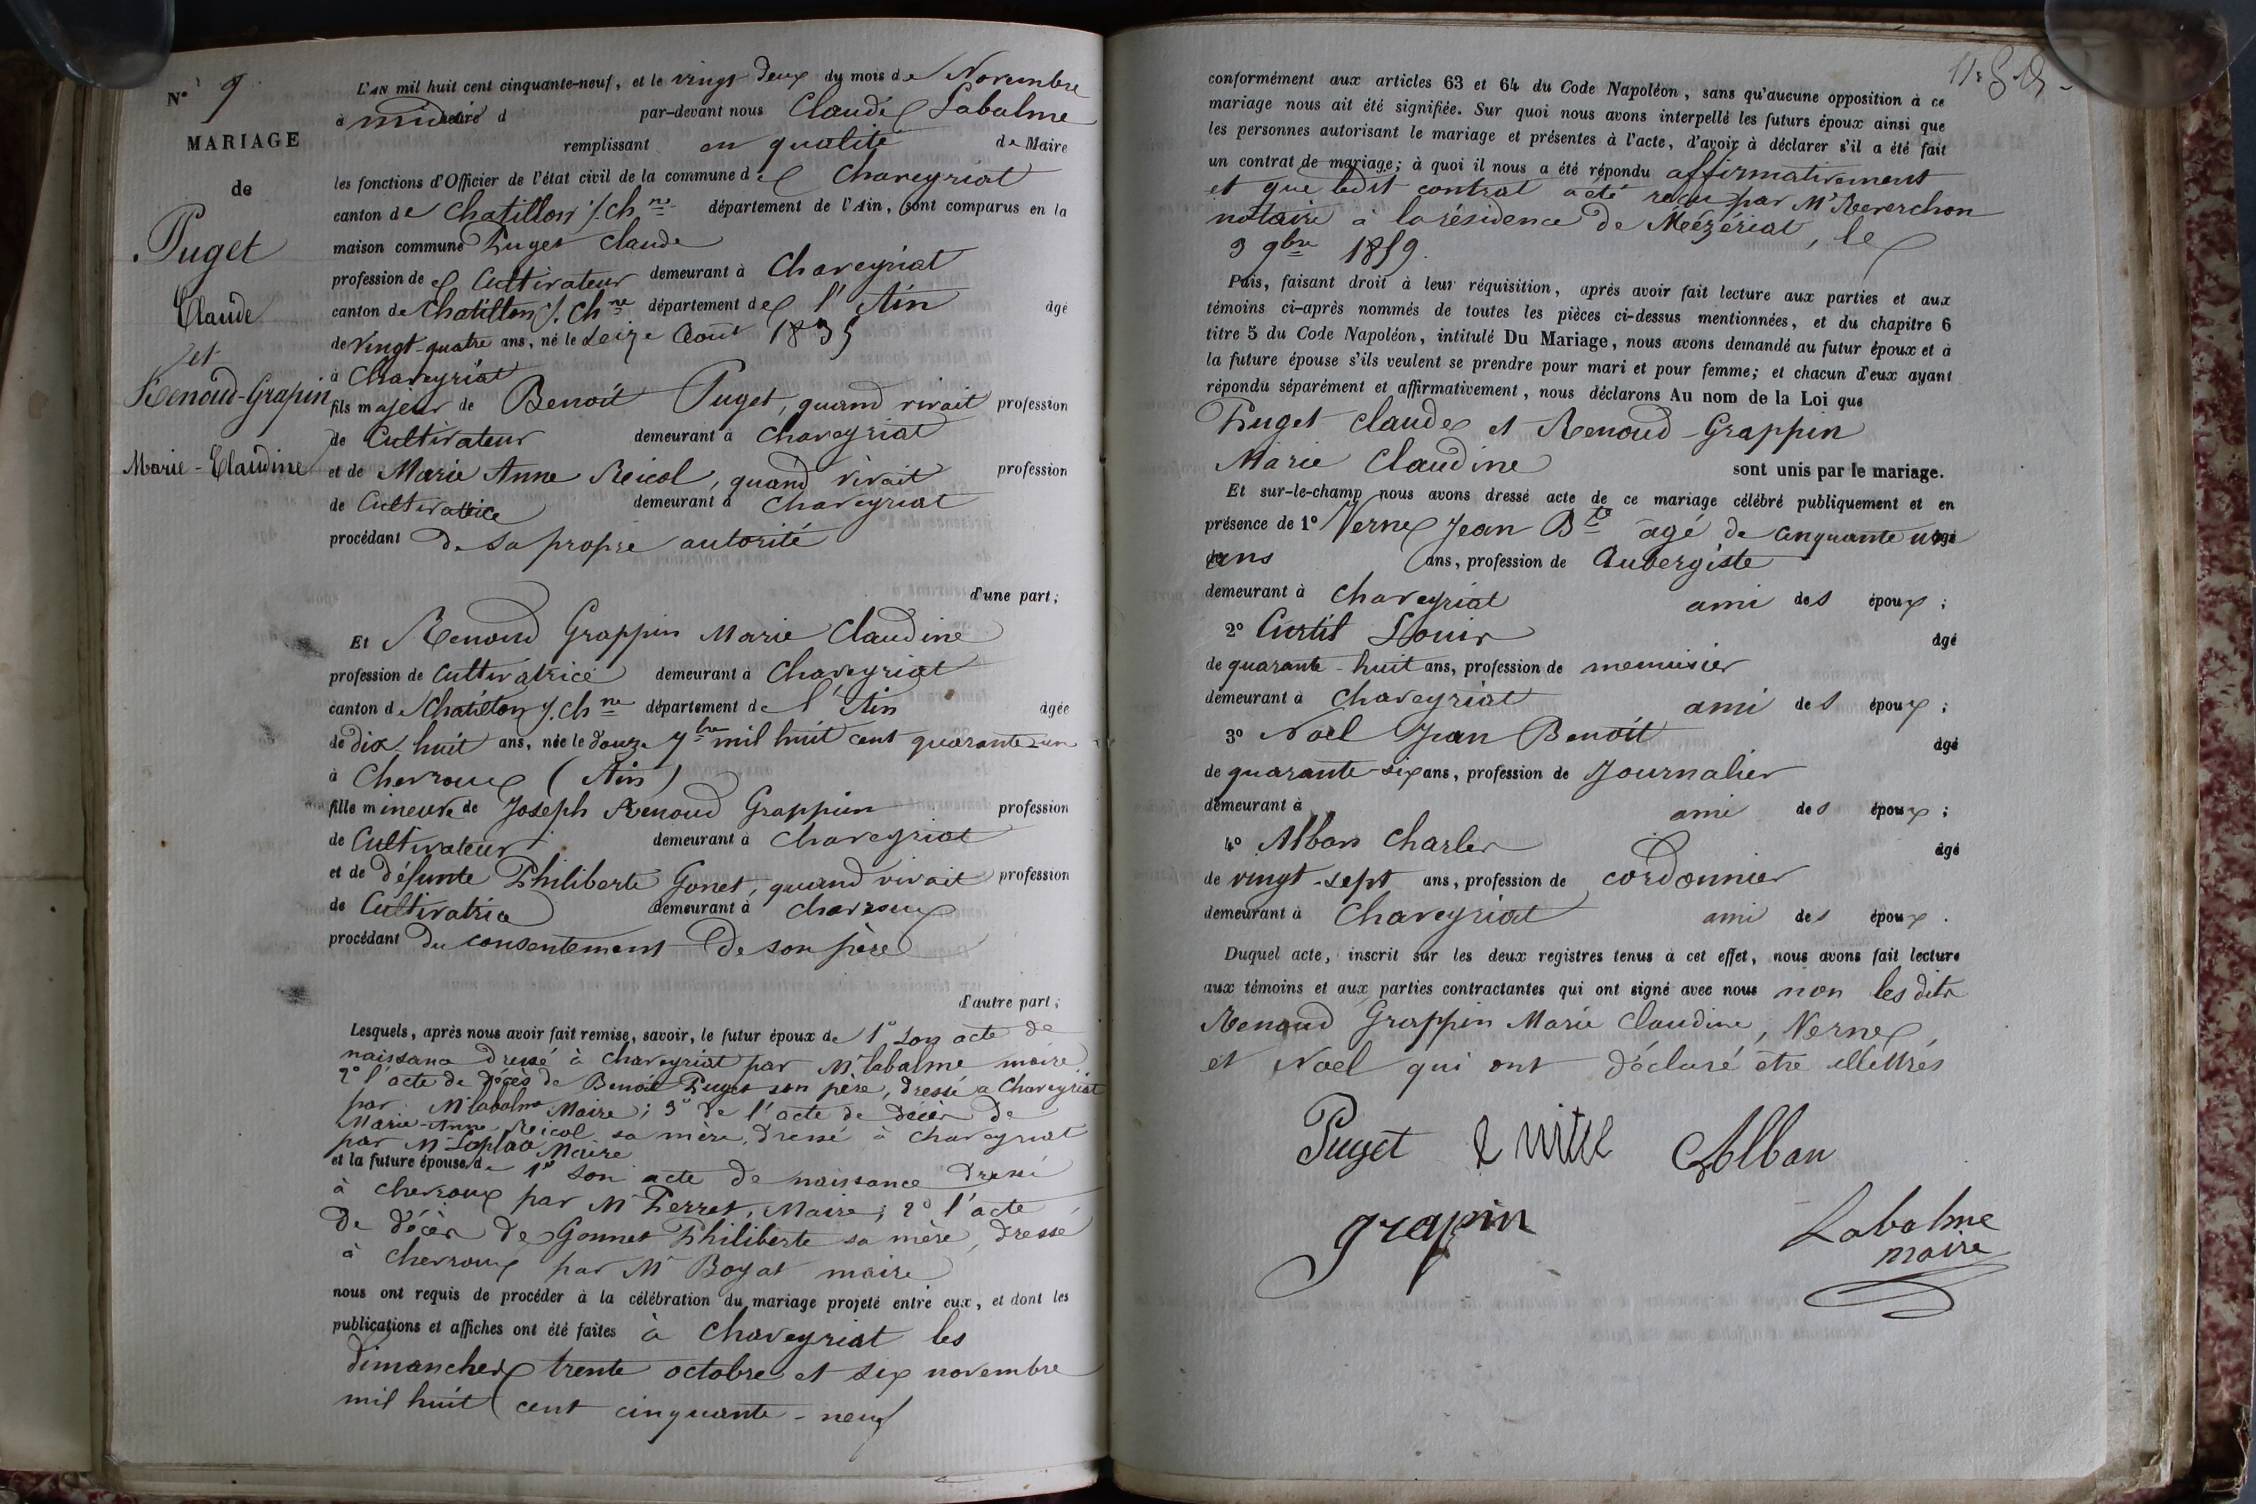 N° 9
MARIAGE
de
Puget
Claude
et
Renoud-Grapin
Marie-Claudine
L'AN mil huit cent cinquante-neuf, et le vingt deux du mois de Novembre
à midi d par-devant nous Claude Labalme
remplissant en qualité de Maire
les fonctions d'Officier de l'état civil de la commune de Chaveyriat
canton de Chatillon s/. Chne département de l'Ain, sont comparus en la
maison commune Puget Claude
profession de Cultivateur demeurant à Chaveyriat
canton de Chatillon s/. Chne département de l'Ain âgé
de vingt-quatre ans, né le seize Aout 1835
à Chaveyriat
fils majeur de Benoît Puget, quand vivait profession
de Cultivateur demeurant à Chaveyriat
et de Marie Anne Reicol, quand vivait profession
de Cultivatrice demeurant à Chaveyriat
procédant de sa propre autorité
d'une part;
Et Renoud Grappin Marie Claudine
profession de Cultivatrice demeurant à Chaveyriat
canton de Chatillon s/. Chne département de l'Ain âgée
de dix-huit ans, née le douze 7bre mil huit cent quarante-un
à Chevroux (Ain)
fille mineure de Joseph Renoud Grappin profession
de Cultivateur demeurant à Chaveyriat
et de défunte Philiberte Gonet, quand vivait profession
de Cultivatrice demeurant à Chevroux
procédant du consentement de son père
d'autre part;
Lesquels, après nous avoir fait remise, savoir, le futur époux de 1° Son acte de
naissance dressé à Chaveyriat par Mr labalme maire
2° l'acte de décès de Benoit Puget son père, dressé a Chaveyriat
par Mr labalme Maire; 3° de l'acte de décès de
Marie-Anne Reicol sa mère, dressé à Chaveyriat
par Mr Laplace Maire
et la future épouse de 1° Son acte de naissance dressé
à Chevroux par Mr Perret, Maire; 2° l'acte
de décès de Gonnet Philiberte sa mère, dressé
à Chevroux par Mr Boyat maire
nous ont requis de procéder à la célébration du mariage projeté entre eux, et dont les
publications et affiches ont été faites à Chaveyriat les
dimanches trente octobre et six novembre
mil huit cent cinquante-neuf
conformément aux articles 63 et 64 du Code Napoléon, sans qu'aucune opposition à ce
mariage nous ait été signifiée. Sur quoi nous avons interpellé les futurs époux ainsi que
les personnes autorisant le mariage et présentes à l'acte, d'avoir à déclarer s'il a été fait
un contrat de mariage; à quoi il nous a été répondu affirmativement
et que ledit contrat a été reçu par Mr Reverchon
notaire à la résidence de Mézériat, le
3 9bre 1859.
Puis, faisant droit à leur réquisition, après avoir fait lecture aux parties et aux
témoins ci-après nommés de toutes les pièces ci-dessus mentionnées, et du chapitre 6
titre 5 du Code Napoléon, intitulé Du Mariage, nous avons demandé au futur époux et à
la future épouse s'ils veulent se prendre pour mari et pour femme; et chacun d'eux ayant
répondu séparément et affirmativement, nous déclarons Au nom de la Loi que
Puget Claude et Renoud-Grappin
Marie Claudine sont unis par le mariage.
Et sur-le-champ nous avons dressé acte de ce mariage célébré publiquement et en
présence de 1° Verne Jean Bte agé de cinquante un
ans ans, profession de Aubergiste
demeurant à Chaveyriat ami des époux;
2° Curtil Louis âgé
de quarante-huit ans, profession de menuisier
demeurant à Chaveyriat ami des époux;
3° Noël Jean Benoît âgé
de quarante-six ans, profession de Journalier
demeurant à ami des époux;
4° Alban Charles âgé
de vingt-sept ans, profession de cordonnier
demeurant à Chaveyriat ami des époux.
Duquel acte, inscrit sur les deux registres tenus à cet effet, nous avons fait lecture
aux témoins et aux parties contractantes qui ont signé avec nous non lesdits
Renoud Grappin Marie Claudine, Verne
et Noël qui ont déclaré être illettrés
Puget Alban
grapin Labalme
maire